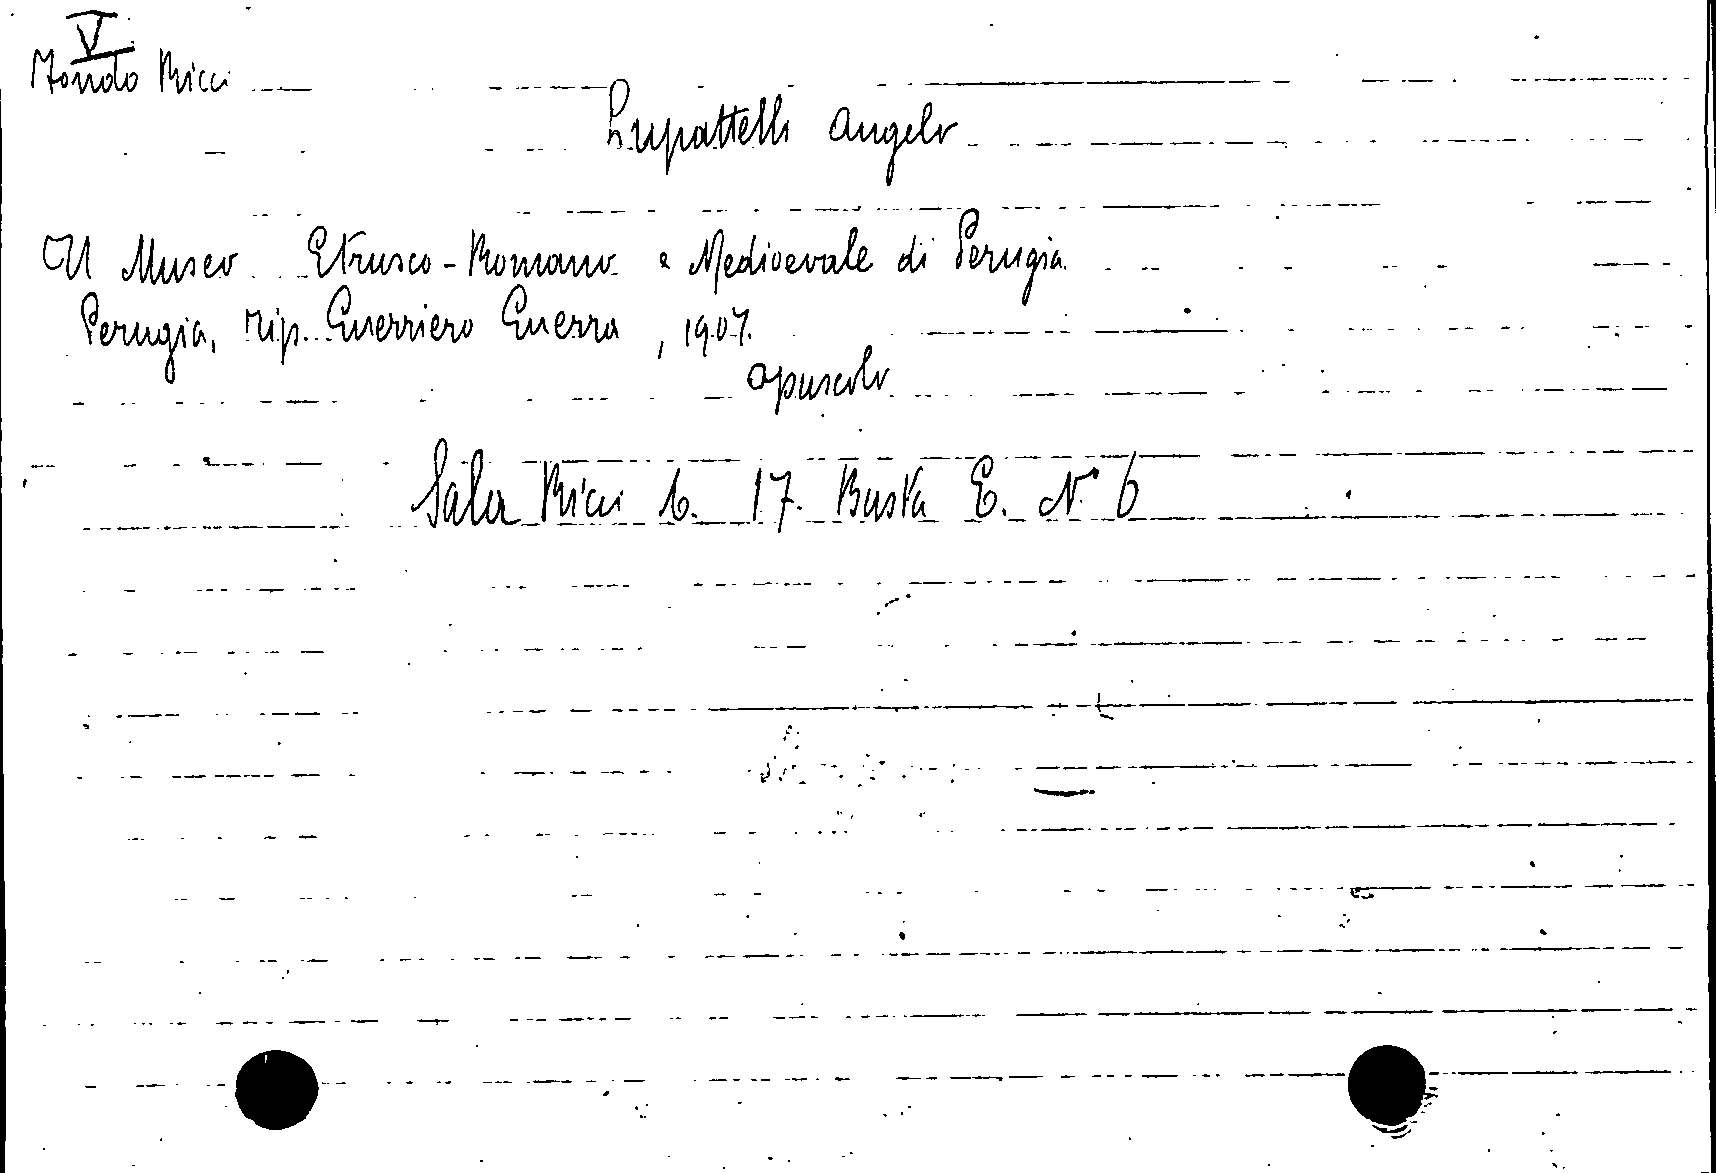 V
Fondo Ricci
Lupattelli Angelo
Il Museo Etrusco-Romano e Medioevale di Perugia
Perugia, Tip. Guerriero Guerra, 1907.
opuscolo
Sala Ricci b. 17. Busta E. N. 6